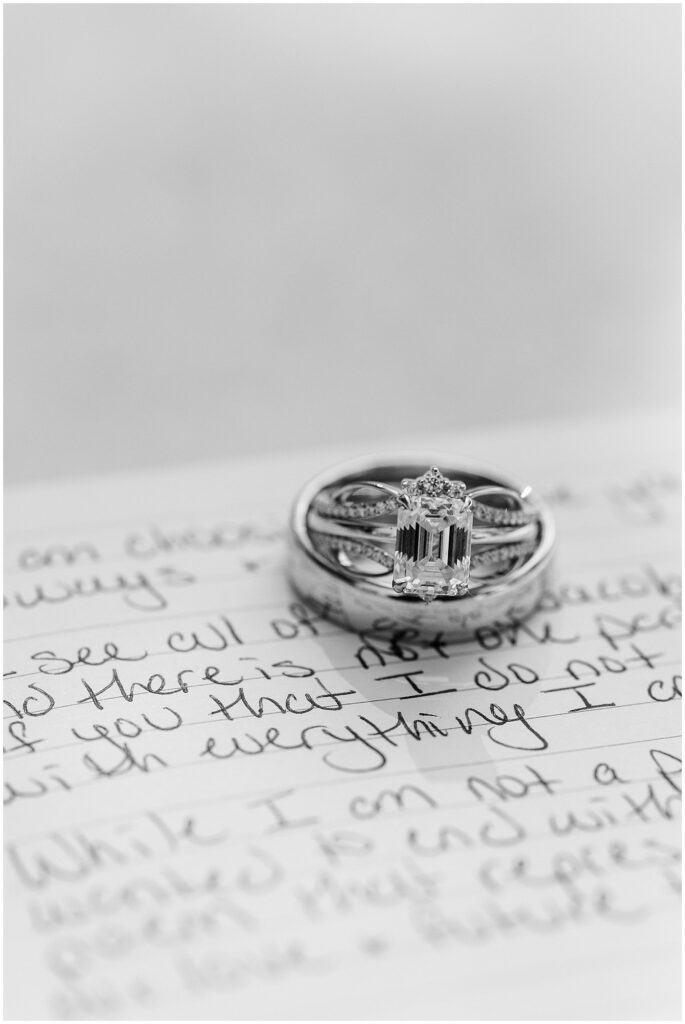 am choos
always +
see all of you Jacob
nd there is not one par
of you that I do not
with everything I a
While I am not a p
wanted to end with
poem that repres
our love + future